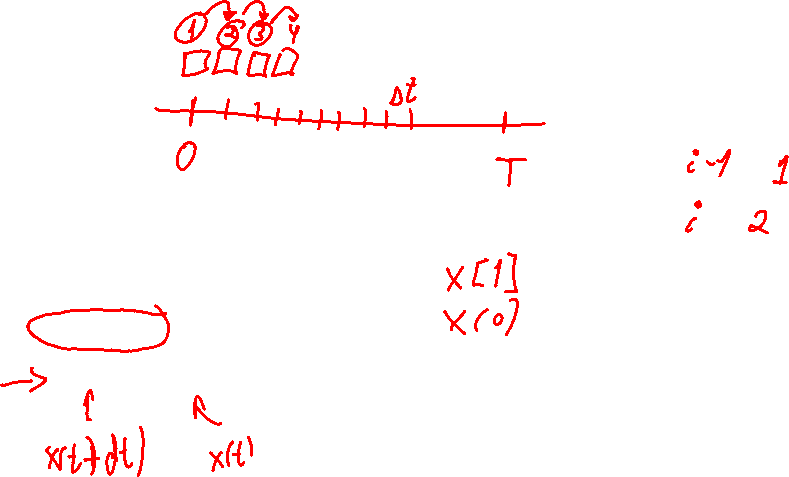 1 2 3 4
Δt
0 T
i-1 1
i 2
x[1]
x(0)
x(t+dt) x(t)